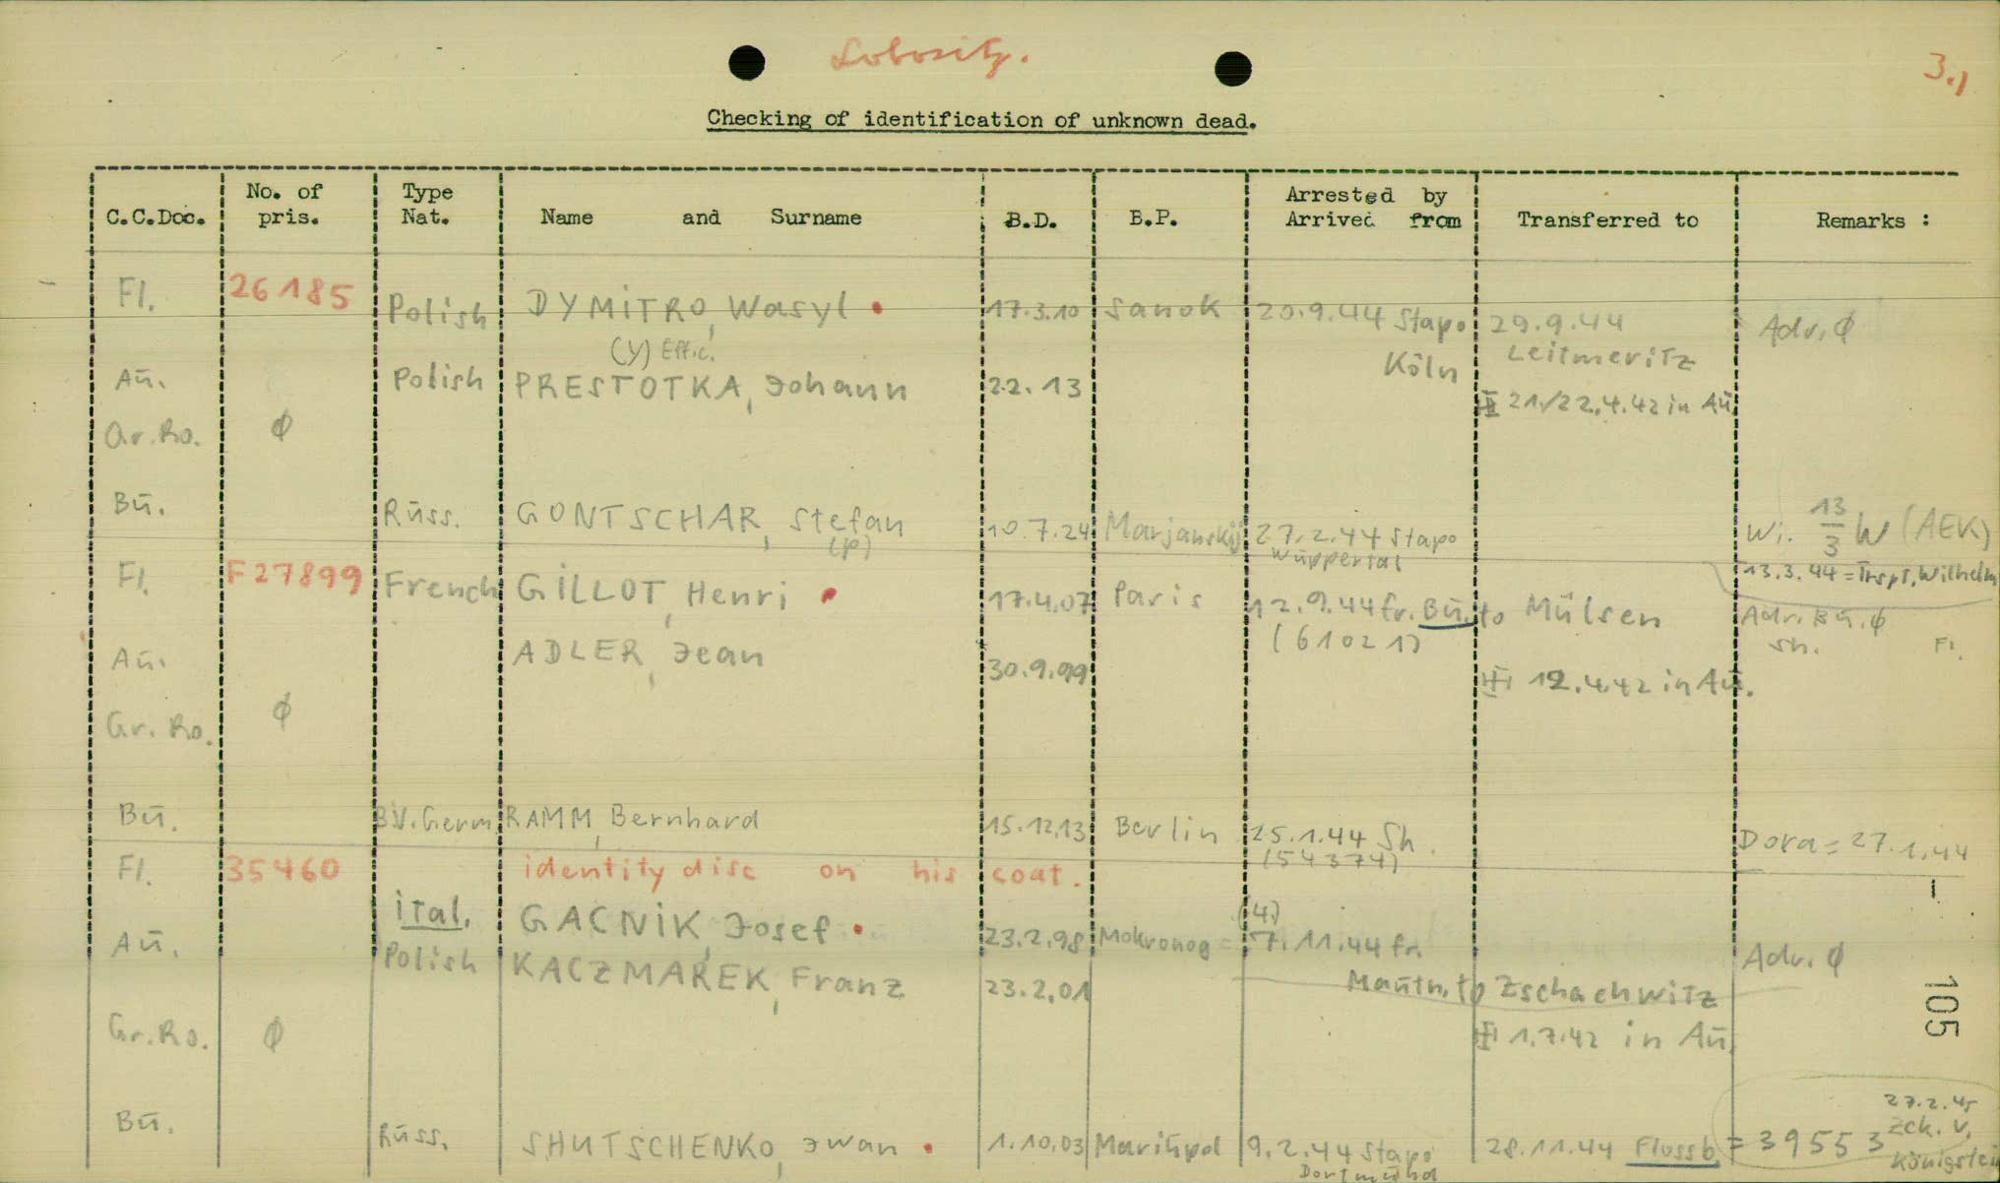 Lobositz.
3.)
Checking of identification of unknown dead.
C.C.Doc. No. of pris. Type Nat. Name and Surname B.D. B.P. Arrested by Arrived from Transferred to Remarks :
Fl. 26185 Polish DYMITRO, Wasyl • 17.3.10 Sanok 20.9.44 Stapo Köln 29.9.44 Leitmeritz Adr. Ø
(y) Effic.
Aū. Polish PRESTOTKA, Johann 22. 13 21./22.4.42 in Aū
Gr.Ro. Ø
Bū. Rūss. GONTSCHAR, Stefan 10.7.24 Marjanskij 27.2.44 Stapo Wūppertal Wi. 13/3 W (AEK)
(p)
13.3.44 = Trspt. Wilhelm
Fl. F27899 French GILLOT, Henri • 17.4.07 Paris 12.9.44 fr. Bū. to Mülsen Adr. Bū. Ø
(61021) Sh. Fl.
Aū. ADLER, Jean 30.9.99 12.4.42 in Aū.
Gr. Ro. Ø
Bū. BV. Germ. RAMM, Bernhard 15.12.13 Berlin 25.1.44 Sh. Dora = 27.1.44
(54374)
Fl. 35460 identity disc on his coat.
ital. GACNIK, Josef • 23.2.98 Mokronog = (4.) 7.11.44 fr. Maūth. to Zschachwitz Adr. Ø
Aū. Polish KACZMAREK, Franz 23.2.01 1.7.42 in Aū.
Gr.Ro. Ø
105
Bū. Rūss. SHUTSCHENKO, Iwan • 1.10.03 Mariūpol 9.2.44 Stapo Dortmūnd 28.11.44 Flossb. = 39553
27.2.45
zck. v.
Königstein